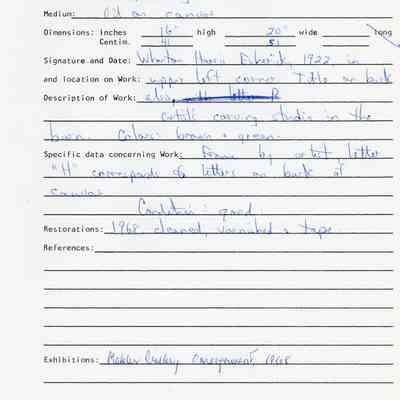 Medium: Oil on canvas
Dimensions: Inches 16" high 20" wide long
Centim. 41 51
Signature and Date: Wharton Harris Esherick, 1922 in
and location on Work: upper left corner Title on back
Description of Work: also, with letter R
Artist's carving studio in the
barn. Colors: brown & green.
Specific data concerning Work: Frame by artist, letter
"H" corresponds to letters on back of
canvas
Condition: good
Restorations: 1968, cleaned, varnished & tape
References:
Exhibitions: Gallery, Consignment, 1968